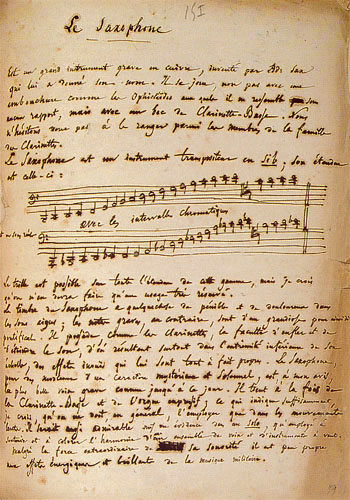 151
Le Saxophone
Est un grand instrument grave en cuivre, inventé par Ad. Sax
qui lui a donné son nom. Il se joue, non pas avec une
embouchure comme les Ophicléides aux quels il ressemble
sous aucun rapport, mais avec un bec de Clarinette-Basse. Nous
n'hésitons donc pas à le ranger parmi les membres de la famille
des Clarinettes.
Le Saxophone est un instrument transpositeur en si b, son étendue
est celle-ci :
avec les intervalles chromatiques
Le trille est possible sur toute l'étendue de cette gamme, mais je crois
qu'on n'en devra faire qu'un usage très réservé.
Le timbre du Saxophone a quelque chose de pénible et de douloureux dans
les sons aigus; les notes graves au contraire sont d'un grandiose pour ainsi dire
pontifical. Il possède comme la Clarinette, la faculté d'enfler et de
son, d'où résultent surtout dans l'extrémité inférieure de son
échelle, des effets inouïs qui lui sont tout à fait propres. Le Saxophone,
pour des morceaux d'un caractère mystérieux et solennel est à mon avis,
la plus belle voix grave connue jusqu'à ce jour. Il tient à la fois de
la Clarinette-Basse et de l'Orgue expressif, ce qui indique suffisamment,
je crois, qu'on ne doit en général, l'employer que dans les mouvements
lents. Il serait aussi admirable mis en évidence dans un solo, qu'employé à
soutenir et à colorer l'harmonie d'un ensemble de voix et d'instruments à vent.
Malgré la force extraordinaire de sa sonorité il est peu propre
aux effets énergiques et brillants de la musique militaire.